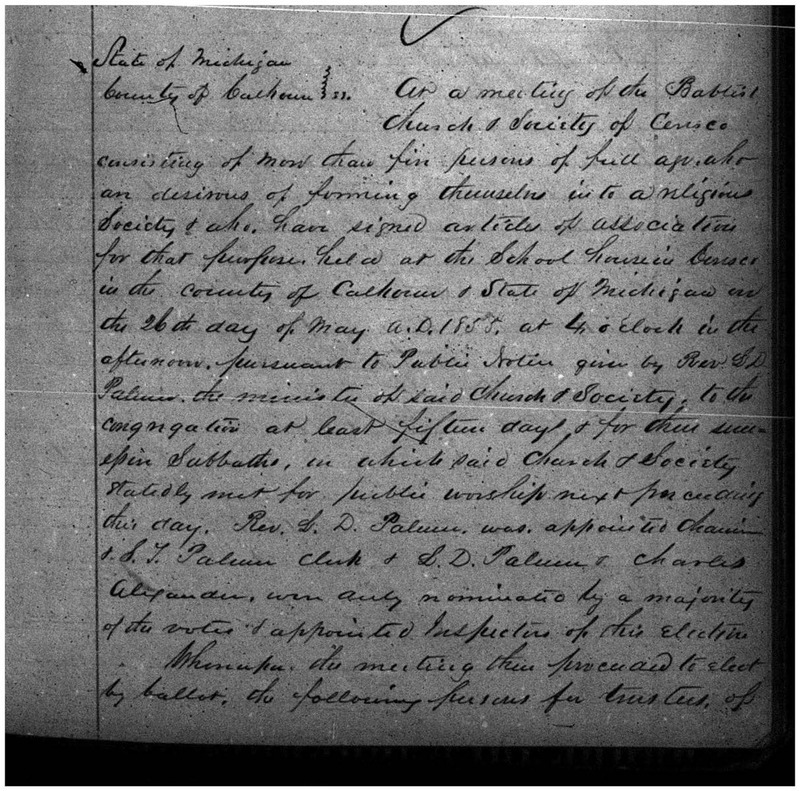 State of Michigan
County of Calhoun } ss. At a meeting of the Baptist
Church & Society of Ceresco
consisting of more than five persons of full age, who
are desirous of forming themselves into a religious
Society & who, have signed articles of association
for that purpose, held at the School house in Ceresco
in the county of Calhoun & State of Michigan on
the 26th day of May A.D. 185 at 4 o'clock in the
afternoon, pursuant to Public Notice given by Rev. L. D.
Palmer, the minister of said Church & Society, to the
congregation at least fifteen days & for three succe=
ssive Sabbaths, on which said Church & Society
statedly met for public worship next preceeding
this day. Rev. L. D. Palmer, was, appointed Chairm
& Palmer Clerk & L. D. Palmer & Charles
Alexander, were duly nominated by a majority
of the votes & appointed Inspectors of this Election
Whereupon, the meeting then proceeded to elect
by ballot, the following persons for trustees, of